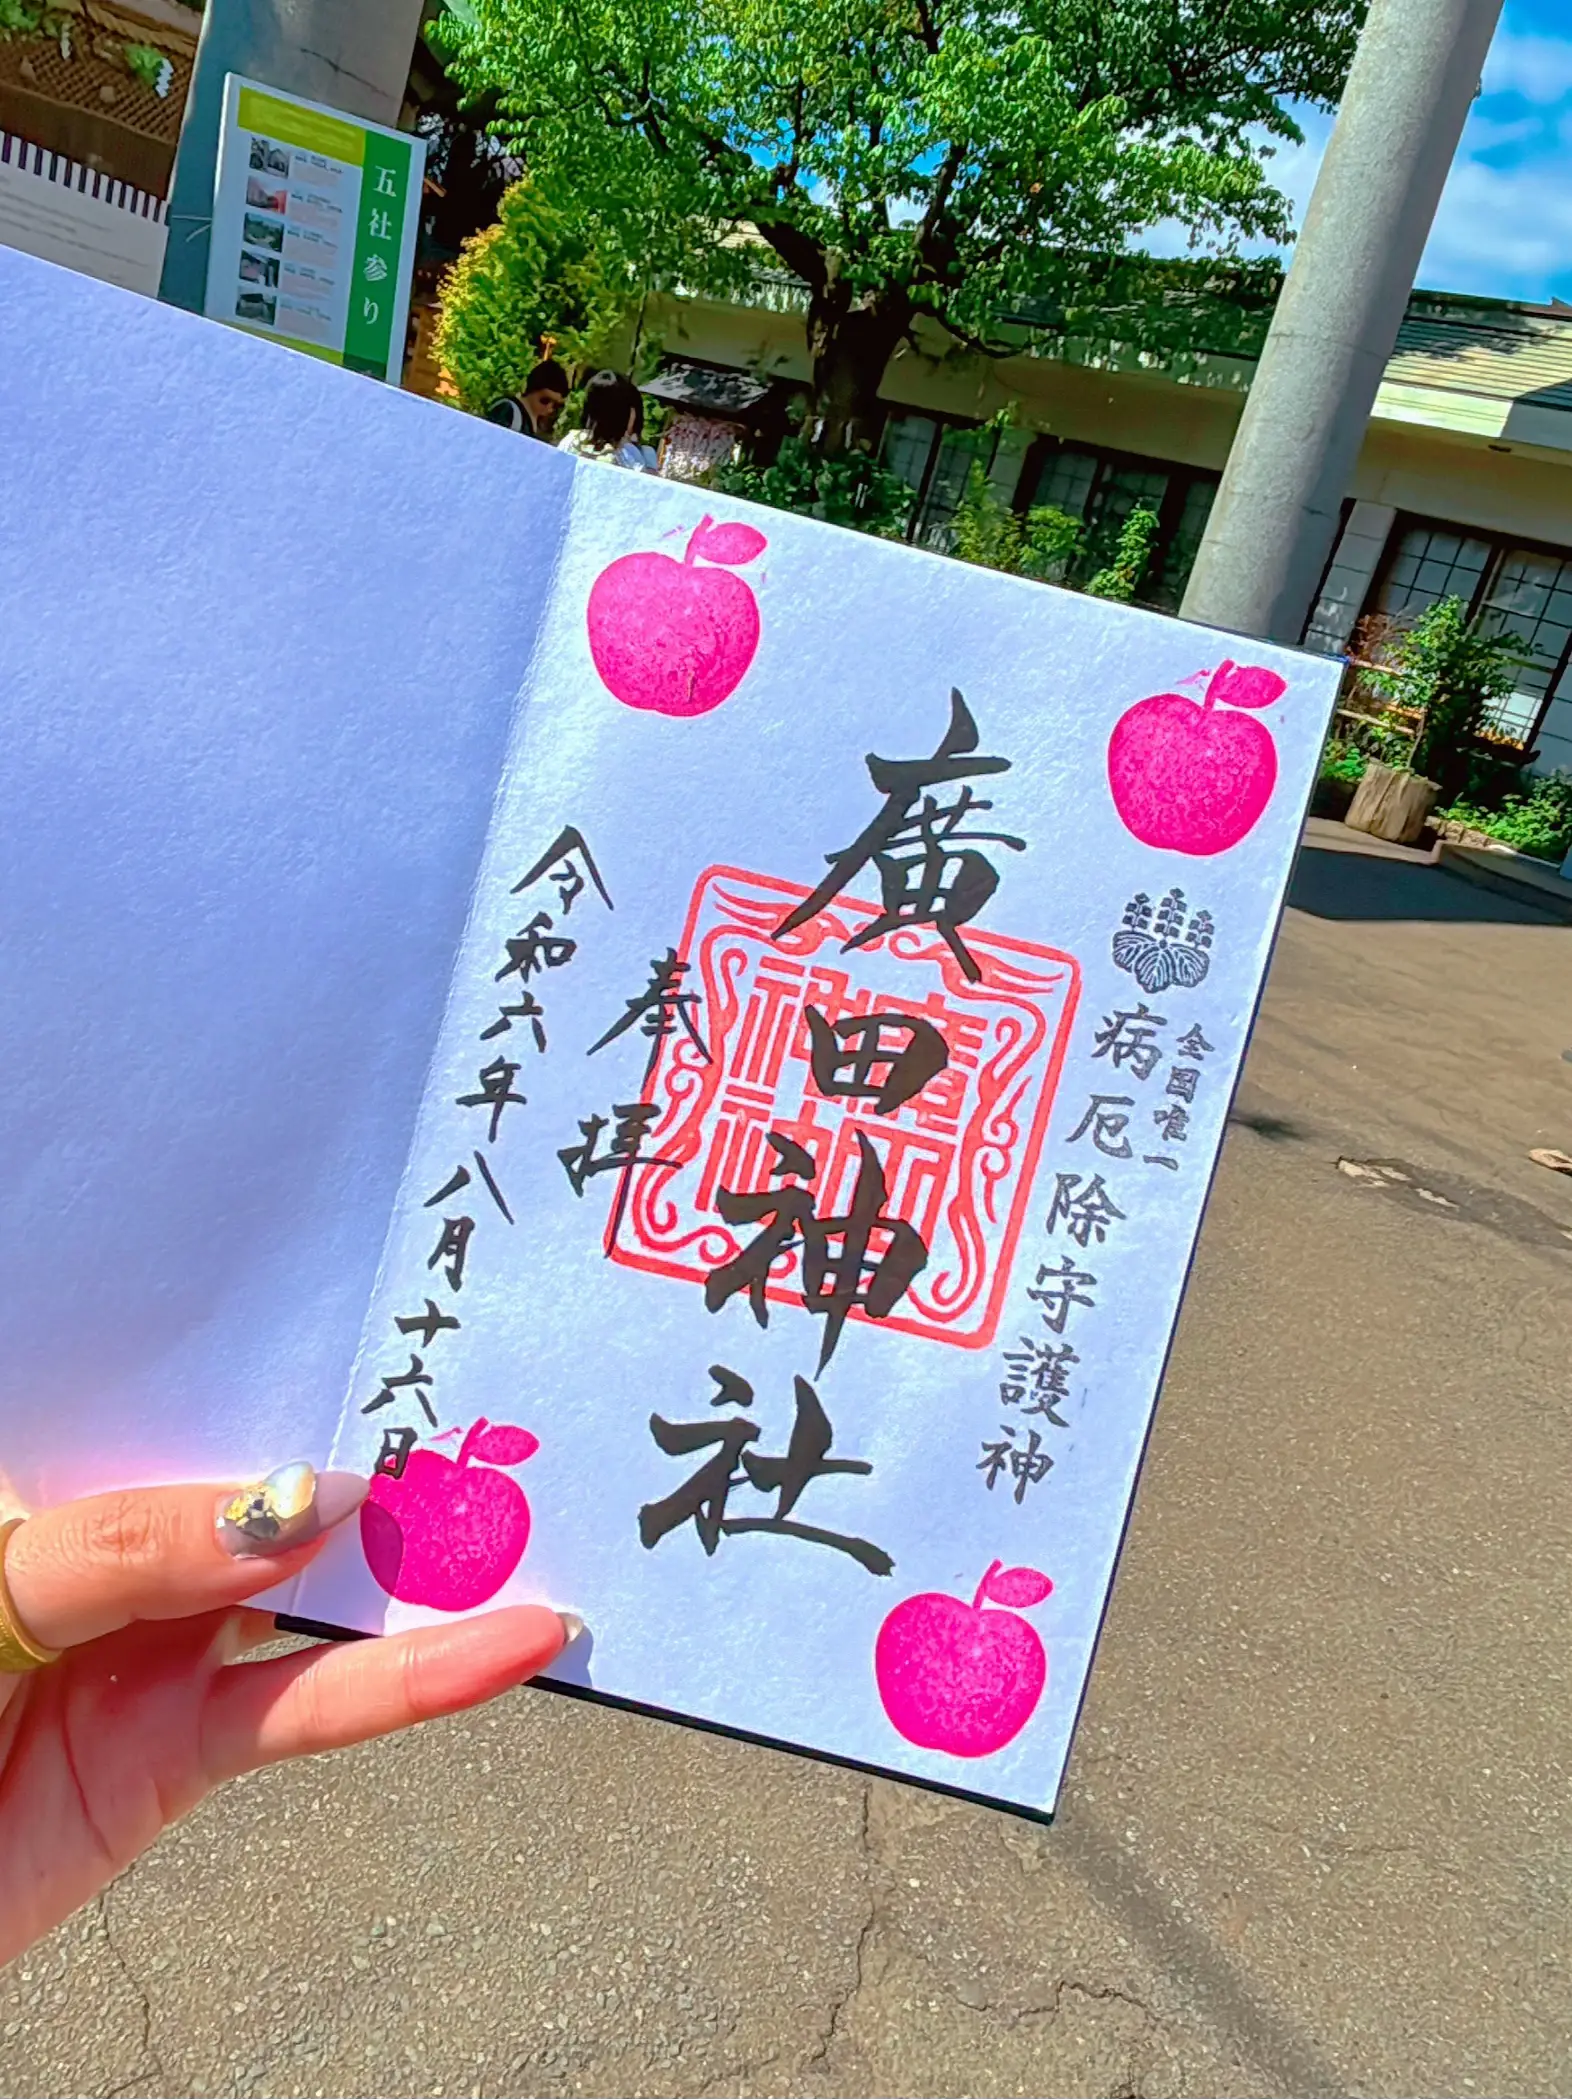 五社参り
全国唯一
病厄除守護神
廣田神社
奉拝
令和六年八月十六日